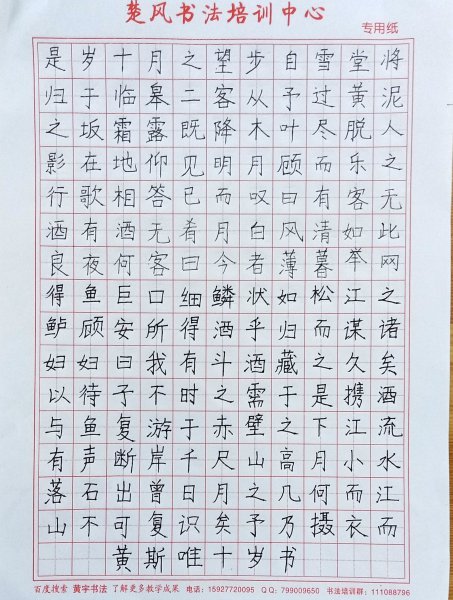 楚风书法培训中心
专用纸
是岁十月之望步自雪堂将
归于临皋二客从予过黄泥
之坂霜露既降木叶尽脱人
影在地仰见明月顾而乐之
行歌相答已而叹曰有客无
酒有酒无肴月白风清如此
良夜何客曰今者薄暮举网
得鱼巨口细鳞状如松江之
鲈顾安所得酒乎归而谋诸
妇妇曰我有斗酒藏之久矣
以待子不时之需于是携酒
与鱼复游于赤壁之下江流
有声断岸千尺山高月小水
落石出曾日月之几何而江
山不可复识矣予乃摄衣而
黄斯唯十岁书
百度搜索 黄宇书法 了解更多教学成果 电话：15927720095 QQ：799009650 书法培训群：111088796